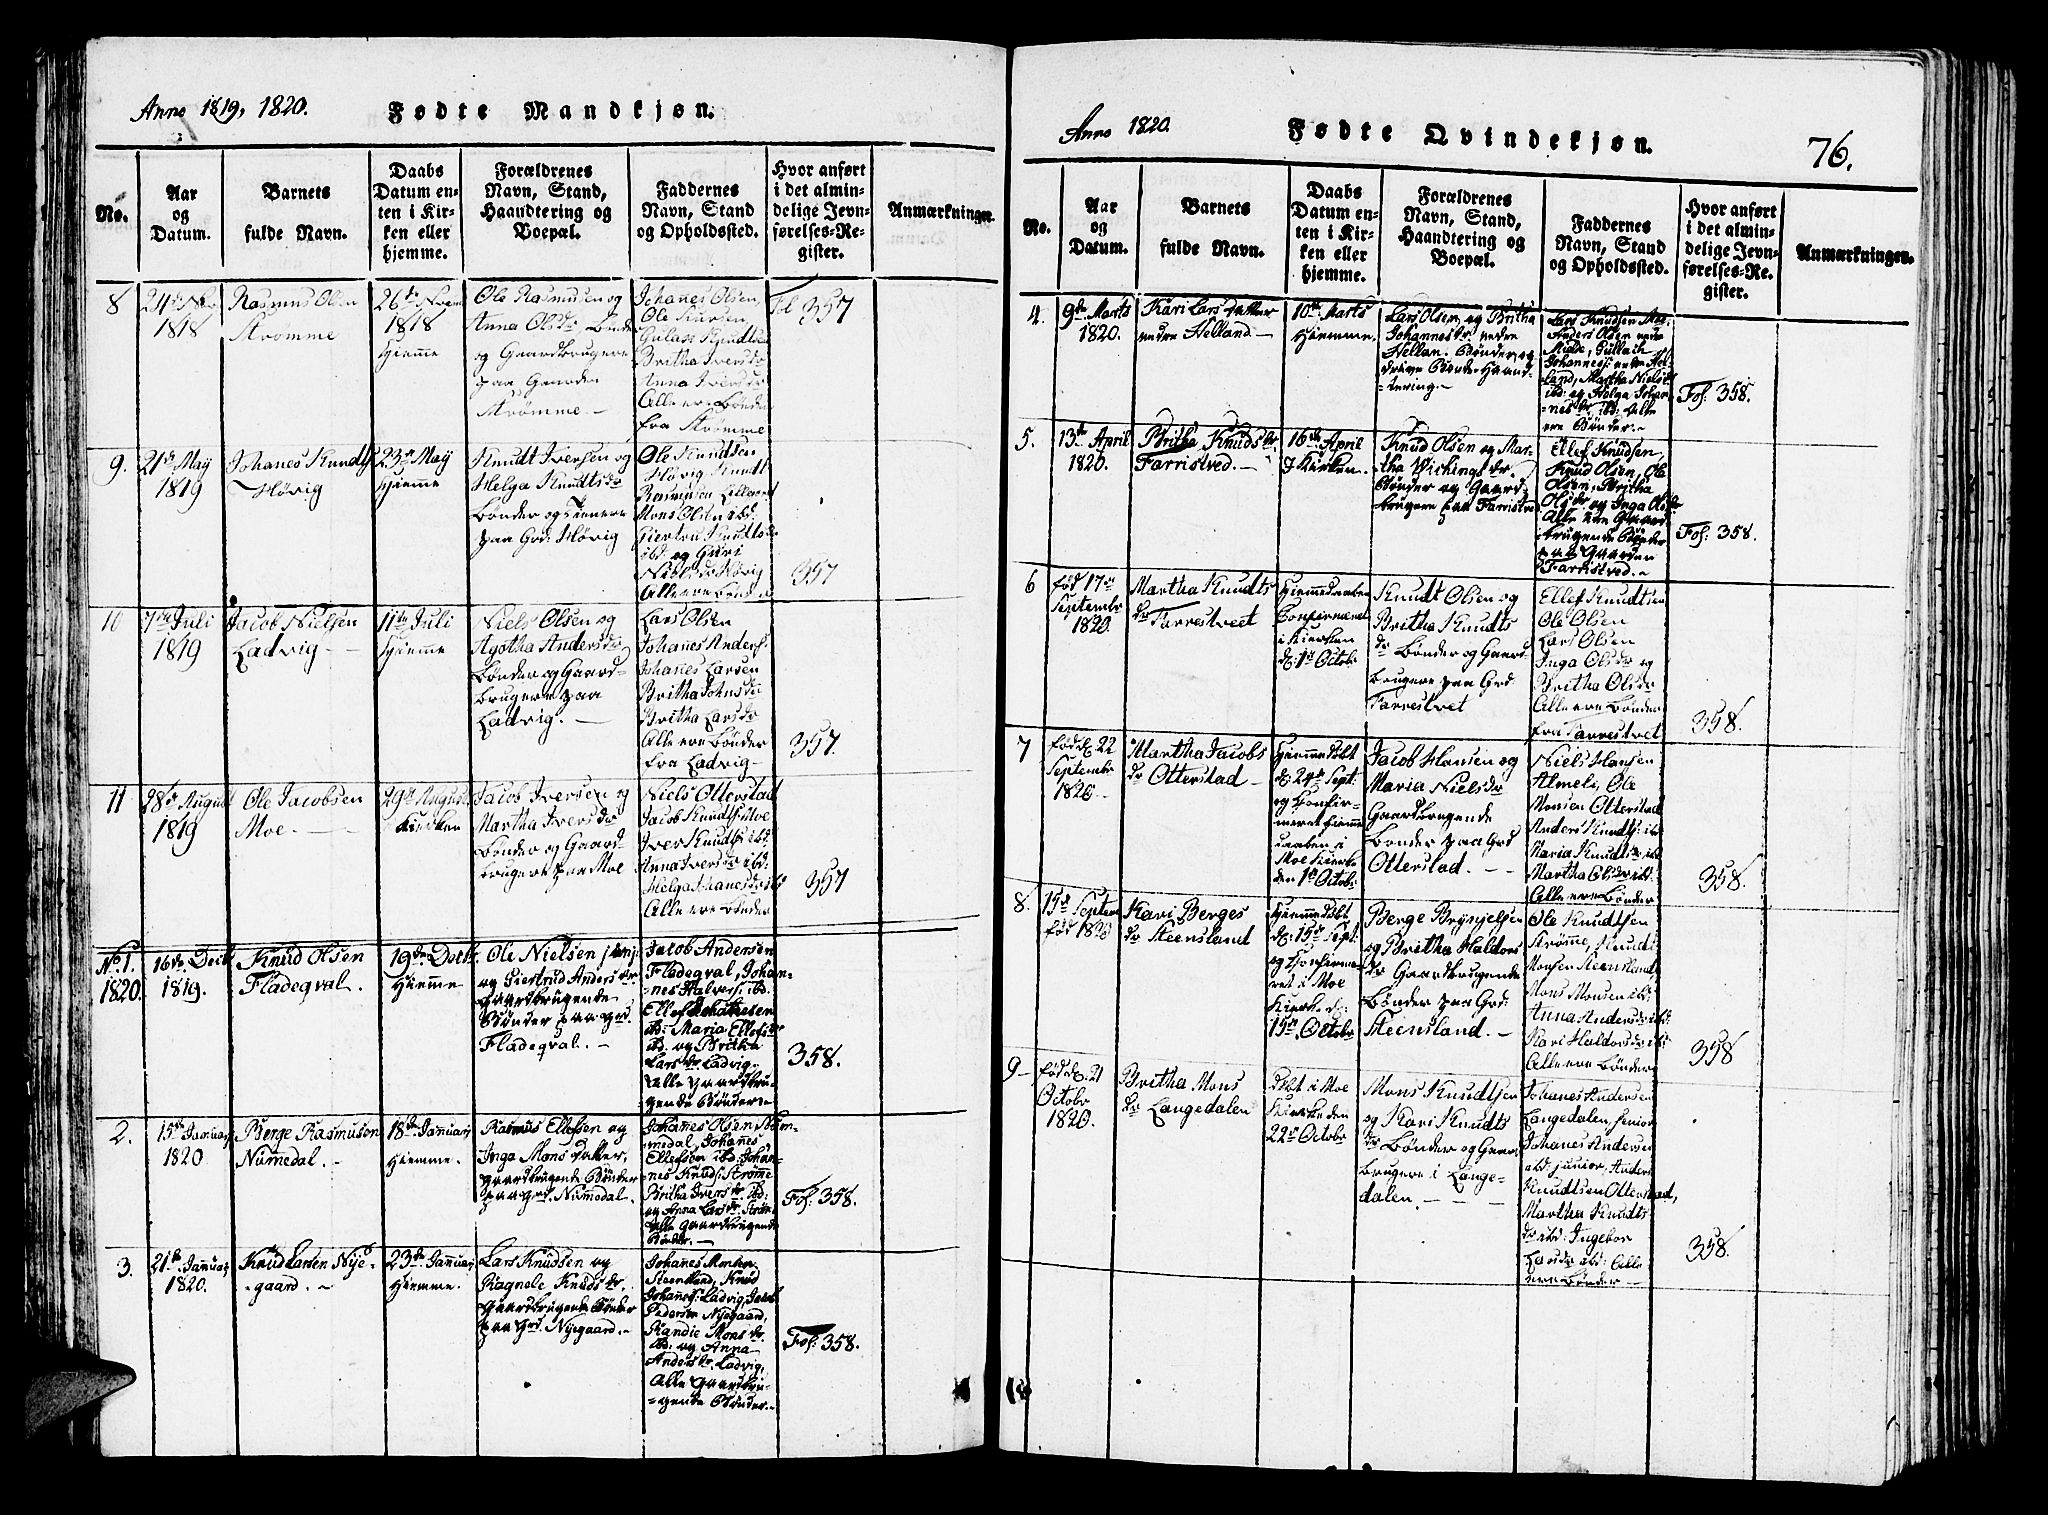 Anno 1819, 1820. Fødte Mandkjøn.
No.
Aar
og
Datum.
Barnets
fulde Navn.
Daabs
Datum en-
ten i Kir-
ken eller
hjemme.
Forældrenes
Navn, Stand,
Haandtering og
Boepæl.
Faddernes
Navn, Stand
og Opholdssted.
Hvor anført
i det almin-
delige Jevn-
førelses-Re-
gister.
Anmærkninger.
8
1818
Rasmus Olsen
Strømme
26de Novem
1818
Hjemme
Ole Rasmusen og
Anna Olsdr Bønder
og Gaardbrugere
paa Gaarden
Strømme. —
Johanes Olsen,
Ole Iversen
Gulach Knudtsen
Britha Iversdr
Anna Iversdr
Alle ere Bønder
fra Strømme
Fol 357
9.
21de May
1819
Johanes Knudts
Høvig
23de May
Hjemme
Knudt Iversen og
Helga Knudtsdr
Bønder og tienere
paa Grd: Høvig
Ole Knudtsen
Høvig Knudt
Rasmusen
Mons Olsen ibd
Giertru Knudtsdr
ibd og Guri
Nielsdr Høvig
Alle ere Bønder
357
10
7de Juli
1819
Jacob Nielsen
Ladvig —
11te Juli
Hjemme
Niels Olsen og
Agotha Andersdr
Bønder og Gaard-
brugere paa
Ladvig. —
Lars Olsen
Johanes Anders.
Johanes Larsen
Britha Johnsdr
Britha Larsdr
Alle ere Bønder
fra Ladvig —
357.
11
28de August
1819
Ole Jacobsen
Moe. —
29de August
Kirken
Jacob Iversen og
Martha Iversdr
Bønder og Gaard-
brugere paa Moe
Niels Otterstad
Jacob Knudts: Moe
Iver Knudts: ibd:
Anna Iversdr ibd:
Helga Johanesdr ibd
Alle ere Bønder
357
No. 1.
1820.
16de Decbr
1819.
Knud Olsen
Fladeqval.
19de Decbr.
Hjemme
Ole Nielsen junj.
og Giertrud Andersdr.
Gaardbrugende
Bønder paa Grd.
Fladeqval. —
Jacob Andersen
Fladeqval, Johan-
nes Halvors. ibd.
Ellef Johannesen
ibd: Maria Ellefsdr
ibd. og Britha
Larsdr. Ladvig.
Alle gaardbru-
gende Bønder
358.
2.
15de Januarj
1820
Berge Rasmusen
Nümedal. —
18de Januarj
Hjemme.
Rasmus Ellefsen og
Inga Mons datter,
gaardbrugende Bønder
paa Grd. Nümedal.
Johannes Olsen Nüm-
medal, Johanes
Ellefsen ibd: Johan-
nes Knuds: Strømme
Britha Iversdr. ibd:
og Anna Larsdr. Strøm
Alle Gaardbrugende
Bønder. —
Fol: 358.
3.
21de Januarj
1820.
Knud Larsen Nye-
gaard. —
23de Januarj
Hjemme.
Lars Knudsen og
Ragnele Knudsdr.
gaardbrugende Bønder
paa Grd. Nyegaard. —
Johanes Monsen
Steensland, Knud
Johanes: Ladvig, Jacob
Pedersen Nyegaard,
Randie Monsdr.
ibd: og Anna
Andersdr. Ladvig,
Alle Gaardbru-
gende Bønder. —
Fol: 358.
Anno 1820. Fødte Qvindekjøn. 76.
No.
Aar
og
Datum.
Barnets
fulde Navn.
Daabs
Datum en-
ten i Kir-
ken eller
hjemme.
Forældrenes
Navn, Stand,
Haandtering og
Boepæl.
Faddernes
Navn, Stand
og Opholdssted.
Hvor anført
i det almin-
delige Jevn-
førelses-Re-
gister.
Anmærkninger.
4.
9de Marts
1820.
Kari Lars datter
nedre Helland —
10de Marts
Hjemme.
Lars Olsen og Britha
Johannesdr. nedre
Hellan. Bønder, og
drive Bonde Haand-
tering. —
Lars Knudsen
Anders Olsen
Milde, Gullach
Johannes: nedre Hel-
land, Martha Nielsdr
ibd: og Helga Johan-
nesdr ibd: Alle
ere Bønder. —
Fol. 358.
5.
13de April
1820.
Britha Knudsdr
Farristved. —
16de April
I Kirken.
Knud Olsen og Mar-
tha Wichingsdr.
Bønder og Gaard-
brugere paa Farristved
Ellef Knudsen,
Knud Olsen, Ole
Olsen, Britha
Olsdr og Inga Olsdr
Alle ere Gaard-
brugende Bønder
paa Gaarden
Farristved. —
Fol: 358.
6
fød 17de
Septembr
1820.
Martha Knudts
dr Farrestvet
Hjemmedaaben
Confirmeret
i Kiersken
d: 1te Octobr
Knudt Olsen og
Britha Knudts
dr Bønder og Gaard
brugere paa Grd
Farrestvet
Ellef Knudtsen
Ole Olsen
Lars Olsen
Inga Olsdr og
Britha Olsdr
Alle ere Bønder
fra Farrestvet
358.
7
fød d. 22
Septembr
1820. —
Martha Jacobs
dr Otterstad —
Hjemmedøbt
d: 24de Sept:
og Confir-
meret Hjemme
daaben i
Moe Kierke
den 1te Octobr
Jacob Hansen og
Maria Nielsdr
Gaardbrugende
Bønder paa Grd
Otterstad. —
Niels Hansen
Almeli, Ole
Monsen Otterstad
Anders Knudts: ibd
Maria Knudtsdr ibd
Martha Olsdr ibd:
Alle ere Bønder
358.
8.
15de Septem
fød 1820
Kari Berges
dr Steensland
Hjemmedøbt
d: 15de Sept:
og Confirme
ret i Moe
Kierke d:
15de Octobr
Berge Brynjelsen
og Britha Haldors
dr Gaardbrugende
Bønder paa Grd:
Steensland. —
Ole Knudtsen
Strømme, Knudt
Monsen Steensland
Mons Monsen ibd:
Anna Andersdr ibd:
Kari Haldorsdr ibd:
Alle ere Bønder
358
9 —
fød d. 21
Octobr
1820.
Britha Mons
dr Langedalen
Døbt i Moe
Kierke den
22de Octobr
Mons Knudtsen
og Kari Knudts
dr Bønder og Gaard
brugere i Lange-
dalen. —
Johanes Andersen
Langedalen senior
Johanes Andersen
ibd: junior, Anders
Knudtsen Otterstad,
Martha Knudts
dr ibd: Ingebor
Larsdr ibd: Alle
ere Bønder —
358.